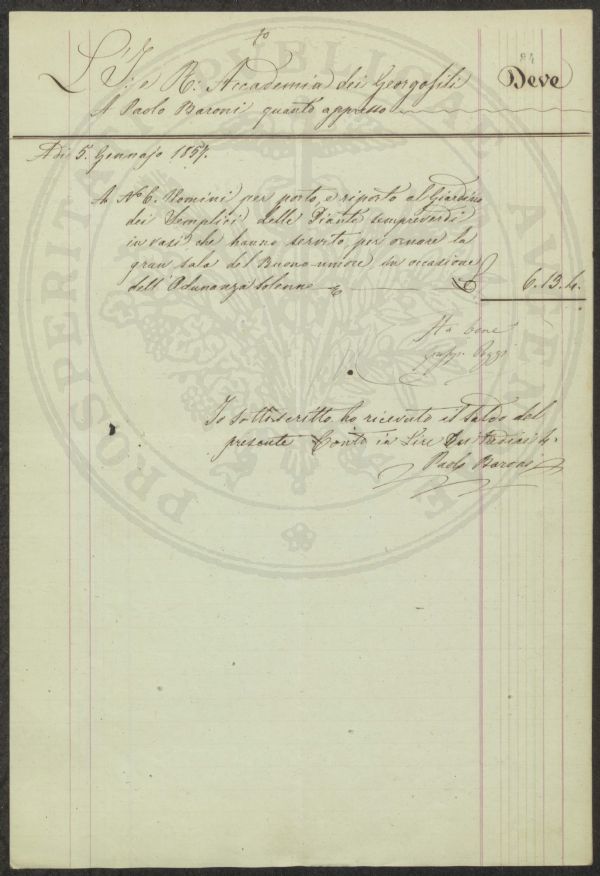 84
L'I: e R: Accademia dei Georgofili Deve
A Paolo Baroni quanto appresso
Adì 5. Gennajo 1857.
A N° 6. Uomini per porto, e riporto al Giardino
dei Semplici delle Piante sempreverdi
in vasi che hanno servito per ornare la
gran sala del Buonumore in occasione
dell'Adunanza solenne £ 6.13.4.
Sta bene
Giusp. Poggi
Io sottoscritto ho ricevuto il saldo del
presente Conto in Lire sei tredici 4.
Paolo Baroni
PROSPERITATI PUBLICAE AUGENDAE